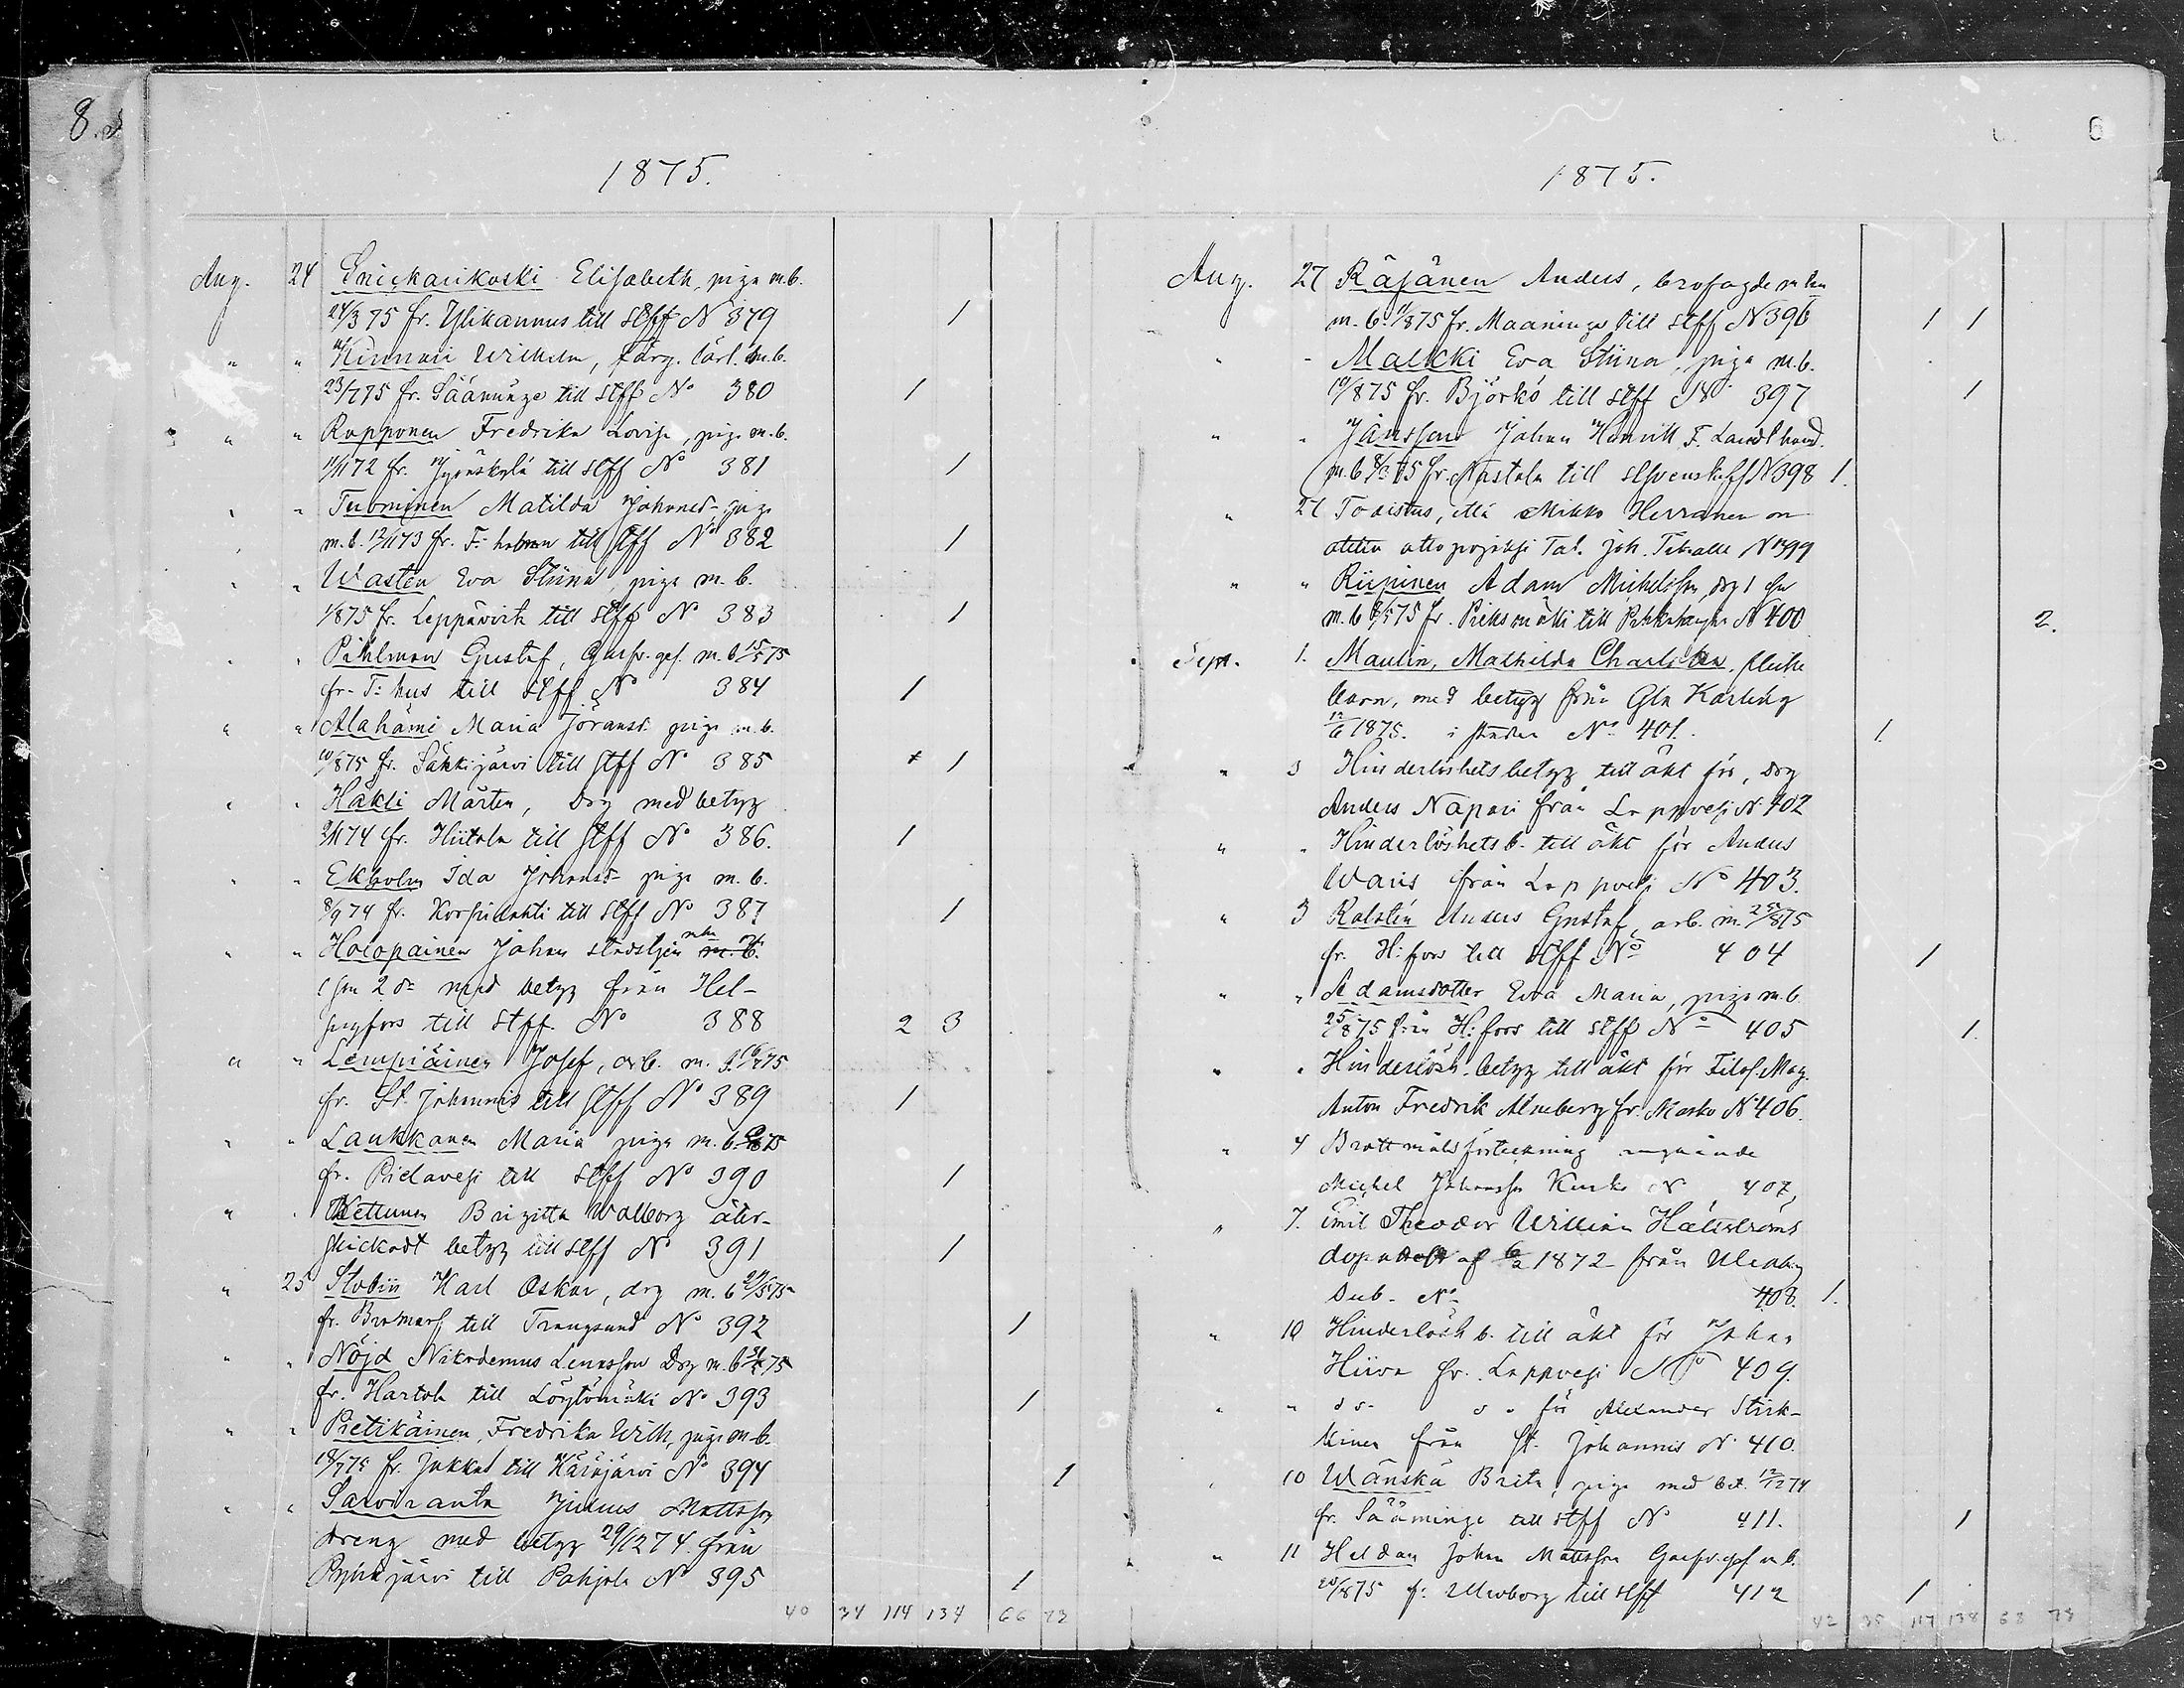 8.
6
1875.
Aug. 24 Snickarikoski Elisabeth, piga m.b.
24/3 75 fr. Ylikannus till Stff No 379 1
" " Kinnari Wilhelm, färg. lärl. m.b.
23/7 75 fr. Sääminge till Stff No 380 1
" " Ropponen Fredrika Lovisa, piga m.b.
11/11 72 fr. Jyväskylä till Stff No 381 1
" " Tuominen Matilda Johansd- piga
m.b. 12/11 73 fr. F: till Stff No 382 1
" " Wasten Eva Stiina, piga m.b.
1/8 75 fr. Leppävirta till Stff No 383 1
" " Pihlman Gustaf, Garfv. ges. m.b. 15/5 75
fr. T: hus till Stff No 384 1
" " Alahämi Maria Göransd. piga m.b.
10/8 75 fr. Säkkijärvi till Stff No 385 1
" " Häkli Mårten, drg med betyg
2/11 74 fr. Hiitola till Stff No 386. 1
" " Ekholm Ida Johansd- piga m.b.
8/9 74 fr. Korpilahti till Stff No 387 1
" " Holopainen Johan m.b.
2 dr med betyg från Hel-
singfors till Stff. No 388 2 3
" " Lempiäinen Josef, arb. m. b. 16/7 75
fr. St. Johannis till Stff No 389 1
" " Laukkanen Maria piga m.b. 75
fr. Pielavesi till Stff No 390 1
" " Kettunen Brigitta Walborg åter-
skickadt betyg till Stff No 391 1
" 25 Karl Oskar, drg m.b 75
fr. Bromarf till Trångsund No 392 1
" " Nöjd Nikodemus Lenasson Drg m.b 75
fr. Hartola till Löytömäki No 393 1
" " Pietikäinen, Fredrika Wilh, piga m.b.
75 fr. Jokkas till Käräjärvi No 394 1
" " Sarviranta Julius Mattsson
dreng med betyg 29/12 74. från
Pyhäjärvi till Pohjola No 395 1
40 34 114 134 66 73
1875.
Aug. 27 Räsänen Anders, brofogde m hu
m.b. 11/8 75 fr. Maaninga till Stff No 396 1 1
" " Malkki Eva Stiina, piga m.b.
10/8 75 fr. Björkö till Stff No 397 1
" " Jansson Johan Henrik F. Landthand.
m.b 75 fr. Nastola till Svenska ff No 398 1.
" 27 Todistus, että Mikko Herranen on
ottopojaksi Tal. Joh. No 399
" " Riipinen Adam Michelsson, drg 1 hu
m.b 75 fr. Pieksämäki till No 400 2.
Sept. 1. Maulin, Mathilda Charlotta, flicke
barn, med betyg från Gla Karleby
12/6 1875. i staden No 401. 1.
" 3 Hinderlöshetsbetyg till äkt för, drg
Anders Napari från Lappvesi No 402
" " Hinderlöshetsb. till äkt för Anders
Waris från Lappvesi No 403.
" 3 Kalstén Anders Gustaf, arb. m. 25/8 75
fr. H:fors till Stff No 404 1
" " Adamsdotter Eva Maria, piga m.b.
25/8 75 från H:fors till Stff No 405 1.
" " Hinderlösh. betyg till äkt för Filos. Mag.
Anton Fredrik Almberg fr. Masko No 406.
" 4 Brottmålsförteckning angående
Michel Johansson No 407,
" 7. Emil Theodor William Hällströms
dopattest af 6/2 1872 från Uleåborg
No 408. 1.
" 10 Hinderlösh b. till äkt för Johan
Hiiva fr. Lappvesi No 409.
" " do- do för Alexander Stick-
kinen från St. Johannis No 410.
" 10 Wänskä Brita, piga med bet. 12/12 74
fr. Sääminge till Stff No 411. 1
" 11 Heldan Johan Mattsson Garfv. ges m b.
20/8 75 fr. Uleåborg till Stff 412 1
42 35 117 138 68 73